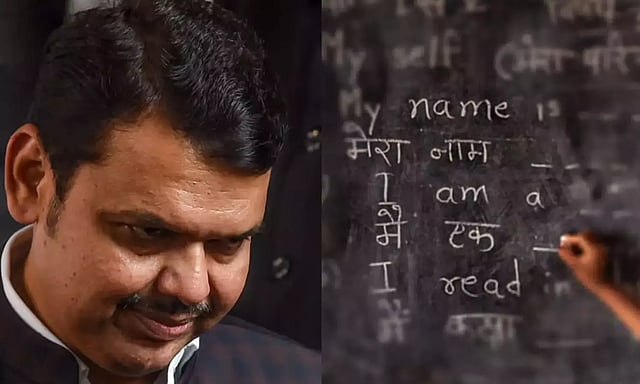 My self
My name is
मेरा नाम _ _
I am a
मैं एक _
I read in
मैं कक्षा